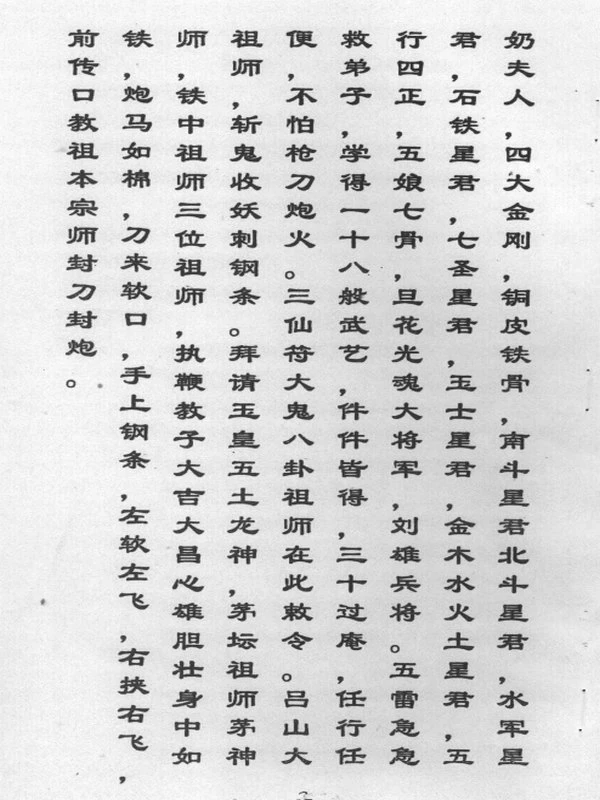 奶夫人，四大金刚，铜皮铁骨，南斗星君北斗星君，水军星
君，石铁星君，七圣星君，玉士星君，金木水火土星君，五
行四正，五娘七骨，旦花光魂大将军，刘雄兵将。五雷急急
救弟子，学得一十八般武艺，件件皆得，三十过庵，任行任
便，不怕枪刀炮火。三仙符大鬼八卦祖师在此敕令。吕山大
祖师，斩鬼收妖刺钢条。拜请玉皇五土龙神，茅坛祖师茅神
师，铁中祖师三位祖师，执鞭教子大吉大昌心雄胆壮身中如
铁，炮马如棉，刀来软口，手上钢条，左软左飞，右挟右飞，
前传口教祖本宗师封刀封炮。